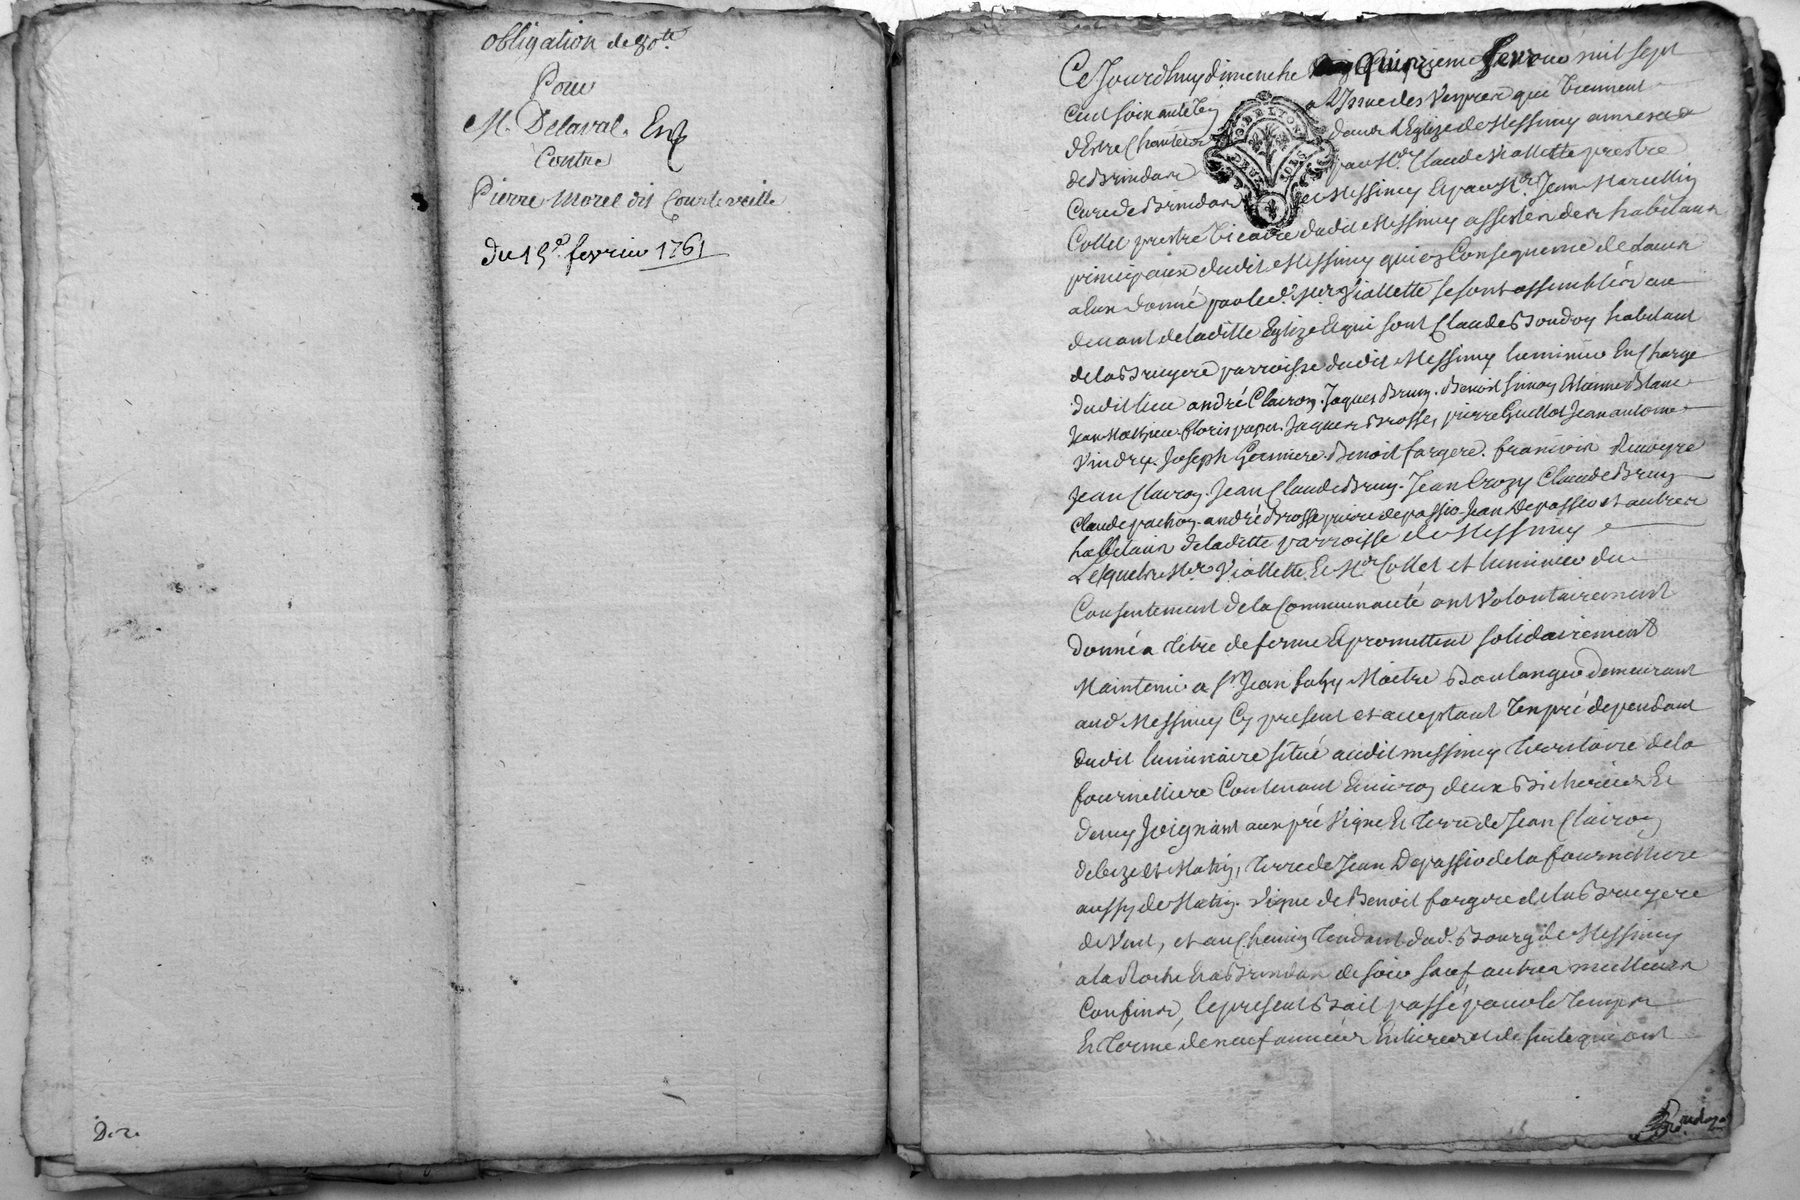 obligation de 80ᵗᵗ
Pour
M. Delaval.
Contre
Pierre Morel dit Courteveille
du 15ᵉ fevrier 1761
Ce Jourdhuy dimenche quinzieme fevrier mil sept
cent soixante un a L'Issue des Vespres qui viennent
d'Estre Chantées dans L'Eglize de Messimy annexe
de Brindas par Mʳ Claude Viallette prestre
Curé de Brindas et Messimy Et par Mʳ Jean Marcellin
Collet prestre Vicaire dudit Messimy assistés des habitans
principaux dudit Messimy qui en Consequence de
donné par led. sieur Viallette se sont assemblés au
devant de laditte Eglize Et qui sont Claude Boudoy habitant
de la Bruyere parroisse dudit Messimy luminier En charge
dudit lieu andré Clairon. Jaques Brun. Benoit simon Etienne Blanc
Jean Mathieu floris papet. Jaques Brosse, pierre Guillot Jean antoine
Vindry. Joseph Benoit fargere. francois
Jean Clairon. Jean Claude Brun. Jean Crozy Claude Brun
Claude pachon. andré Brosse pierre depassio Jean Depassio et autres
habitans de laditte parroisse de Messimy
Lesquels Mʳ Viallette Et Mʳ Collet et luminier du
Consentement de la Communauté ont Volontairement
donné a titre de ferme Et promettent solidairement
Maintenir a sʳ Jean Maitre Boulanger demeurant
aud Messimy Cy present et acceptant Un pré dependant
dudit luminaire situé audit messimy territoire de la
fournilliere Contenant Environ deux Bicherées Et
demy Joignant aux pré Vigne Et terre de Jean Clairon
de bize Et Matin, terre de Jean Depassio de la fournilliere
aussy de Matin. Vigne de Benoit fargere de la Bruyere
de Vent, et au Chemin tendant dud. Bourg de Messimy
a la Roche Et a Brindas de soir sauf autres meilleurs
Confins, le present Bail passé pour le temps
Et terme de neuf années Entieres et de suitte qui ont